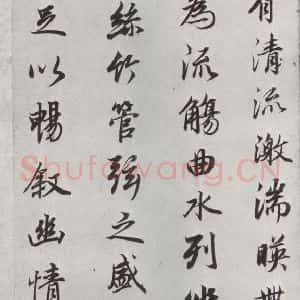 有清流激湍暎
為流觴曲水列
絲竹管弦之盛
足以暢叙幽情
Shufawang.CN